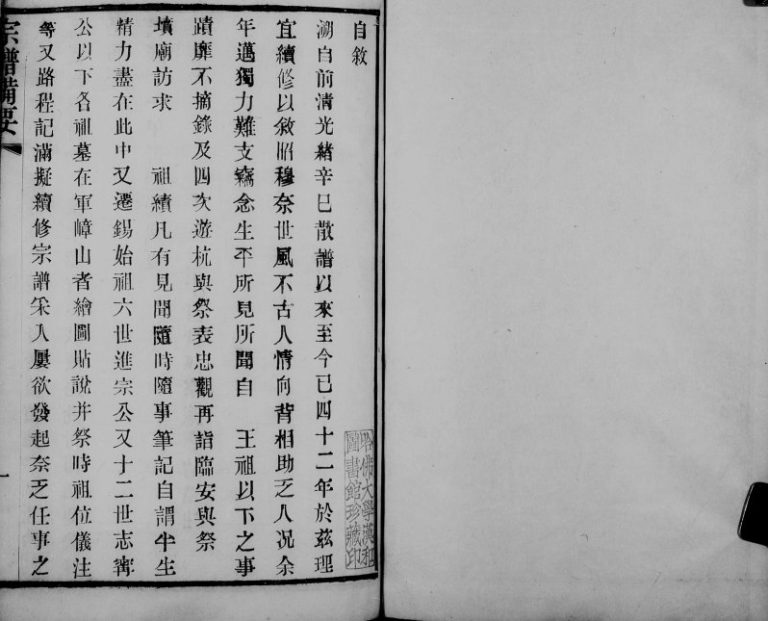 自敘
溯自前清光緒辛巳散譜以來至今已四十二年於茲理
宜續修以敘昭穆奈世風不古人情向背相助乏人況余
年邁獨力難支竊念生平所見所聞自　王祖以下之事
蹟靡不摘錄及四次遊杭與祭表忠觀再詣臨安與祭
墳廟訪求　祖績凡有見聞隨時隨事筆記自謂半生
精力盡在此中又遷錫始祖六世進宗公又十二世志寗
公以下各祖墓在軍嶂山者繪圖貼說并祭時祖位儀注
等又路程記滿擬續修宗譜采入屢欲發起奈乏任事之
宗譜備要
一
哈佛大學漢和
圖書館珍藏印